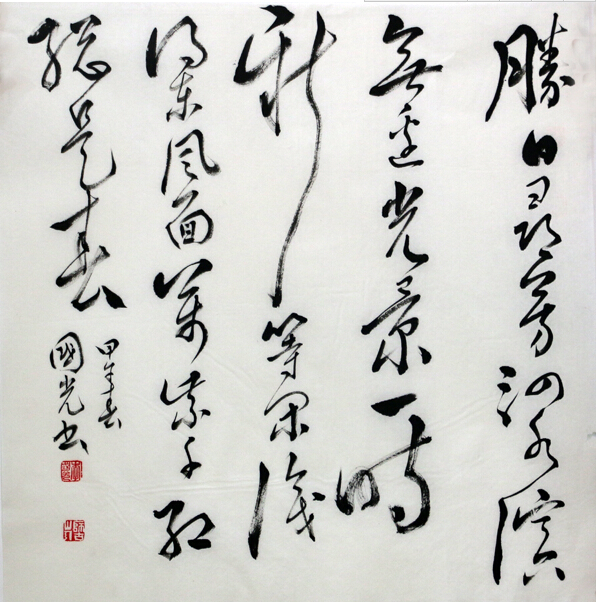 勝日尋芳泗水濱
無邊光景一時
新等閑識
得東風面萬紫千紅
總是春
甲午春
國光書